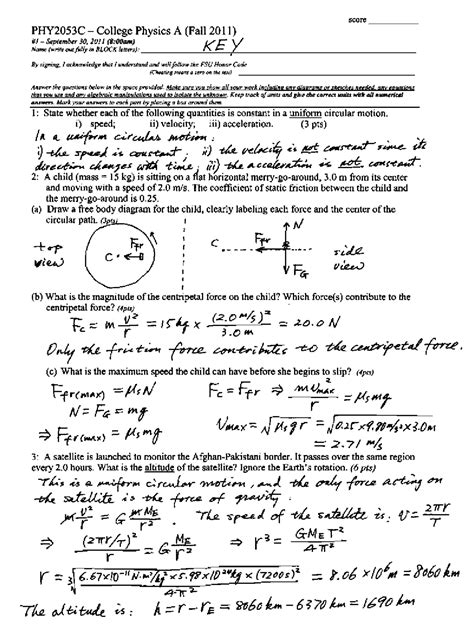 score
PHY2053C – College Physics A (Fall 2011)
#1 – September 30, 2011 (8:00am)
Name (write out fully in BLOCK letters): KEY
By signing, I acknowledge that I understand and will follow the FSU Honor Code
(Cheating means a zero on the test)
Answer the questions below in the space provided. Make sure you show all your work including any diagrams or sketches needed, any equations
that you use and any algebraic manipulations used to isolate the unknown. Keep track of units and give the correct units with all numerical
answers. Mark your answers to each part by placing a box around them.
1: State whether each of the following quantities is constant in a uniform circular motion.
i) speed; ii) velocity; iii) acceleration. (3 pts)
In a uniform circular motion:
i) the speed is constant; ii) the velocity is not constant since its
direction changes with time; iii) the acceleration is not constant.
2: A child (mass = 15 kg) is sitting on a flat horizontal merry-go-around, 3.0 m from its center
and moving with a speed of 2.0 m/s. The coefficient of static friction between the child and
the merry-go-around is 0.25.
(a) Draw a free body diagram for the child, clearly labeling each force and the center of the
circular path. (3pts)
top view
C Ffr
C Ffr N FG
side view
(b) What is the magnitude of the centripetal force on the child? Which force(s) contribute to the
centripetal force? (4pts)
Fc = m v²/r = 15kg × (2.0 m/s)²/3.0 m = 20.0 N
Only the friction force contributes to the centripetal force.
(c) What is the maximum speed the child can have before she begins to slip? (4pts)
Ffr(max) = μs N Fc = Ffr ⇒ m v²max/r = μs mg
N = FG = mg
⇒ Ffr(max) = μs mg Vmax = √(μs g r) = √(0.25×9.80 m/s²×3.0m)
= 2.71 m/s
3: A satellite is launched to monitor the Afghan-Pakistani border. It passes over the same region
every 2.0 hours. What is the altitude of the satellite? Ignore the Earth's rotation. (6 pts)
This is a uniform circular motion, and the only force acting on
the satellite is the force of gravity.
m v²/r = G m ME/r². The speed of the satellite is: v = 2πr/T
⇒ (2πr/T)²/r = G ME/r² ⇒ r³ = G ME T²/4π²
r = ³√(6.67×10⁻¹¹ N·m²/kg² × 5.98×10²⁴ kg × (7200s)²/4π²) = 8.06×10⁶ m = 8060 km
The altitude is: h = r - rE = 8060 km - 6370 km = 1690 km